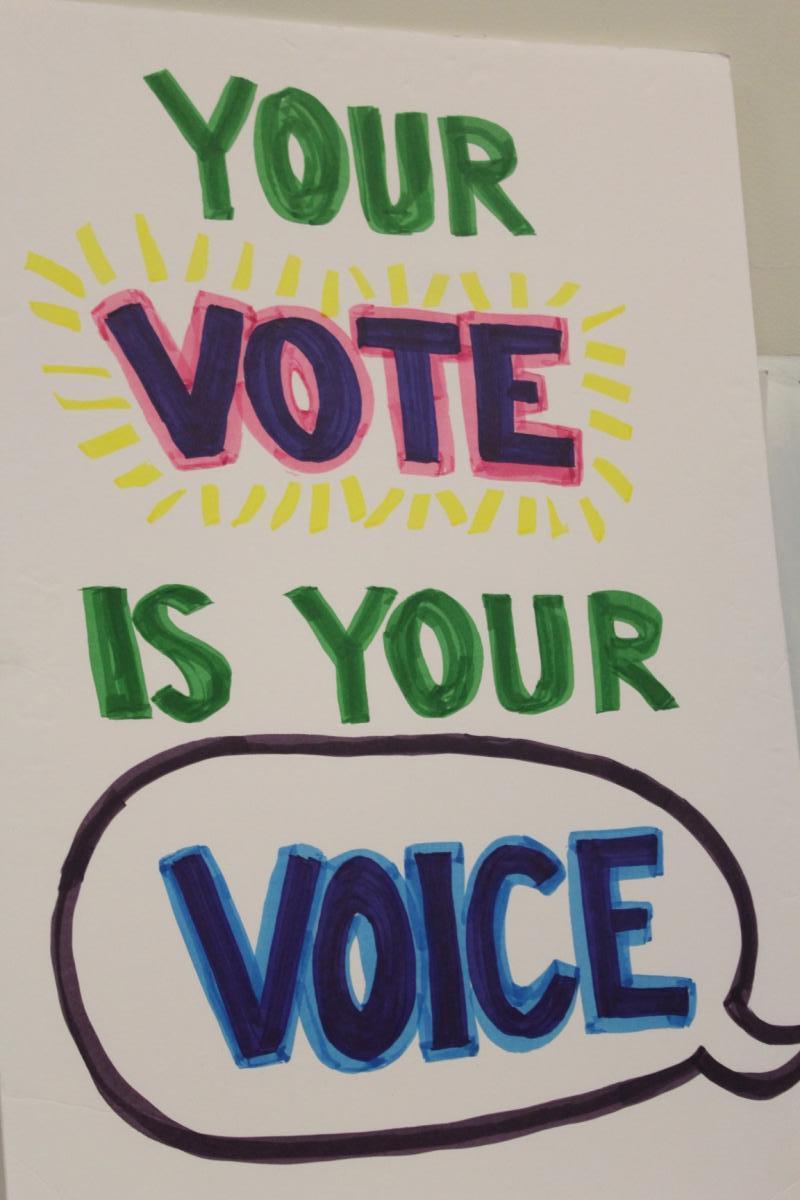 YOUR
VOTE
IS YOUR
VOICE